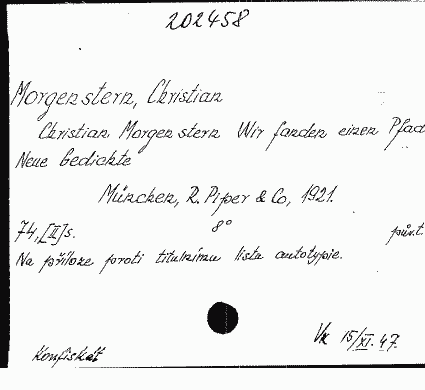 202458
Morgenstern, Christian
Christian Morgenstern Wir fanden einen Pfad
Neue Gedichte
München, R. Piper & Co, 1921.
74,[II]s. 8° pův.t.
Na příloze proti titulnímu listu autotypie.
Vx 15/XI. 47.
Konfiskát